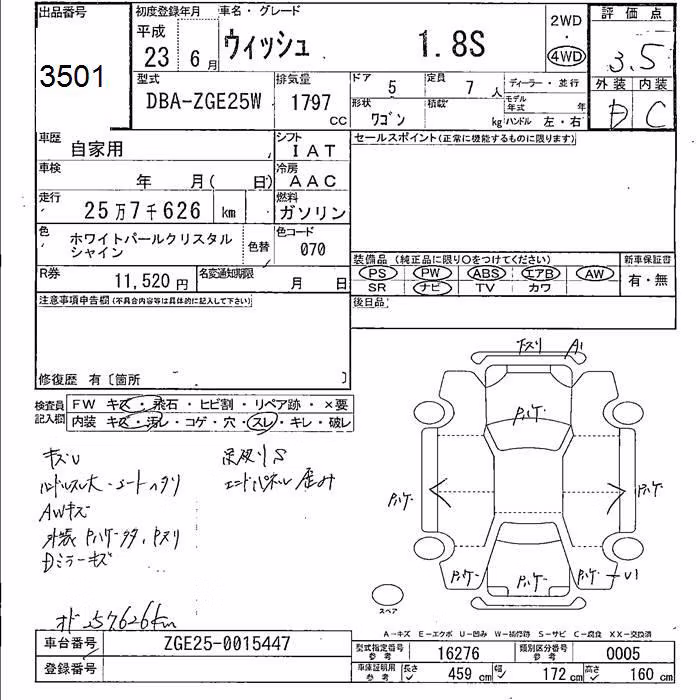 出品番号
3501
初度登録年月
平成
23 6月
車名・グレード
ウィッシュ 1.8S
2WD
・
4WD
評価点
3.5
外装 内装
D C
型式
DBA-ZGE25W
排気量
1797 CC
ドア
5
定員
7 人
ディーラー・並行
形状
ワゴン
積載
kg
モデル年式 年
ハンドル 左・右
車歴
自家用
シフト
IAT
セールスポイント(正常に機能するものに限ります)
車検
年 月( 日)
冷房
AAC
走行
25万7千626 km
燃料
ガソリン
色
ホワイトパールクリスタル
シャイン
色替
色コード
070
R券
11,520円
名変通知期限
月 日
装備品(純正品に限り○をつけてください)
PS PW ABS エアB AW
SR ナビ TV カワ
新車保証書
有・無
注意事項申告欄(不具合内容等は具体的に記入して下さい)
後日品
修復歴 有〔箇所 〕
検査員
記入欄
FW キズ・飛石・ヒビ割・リペア跡・×要
内装 キズ・汚レ・コゲ・穴・スレ・キレ・破レ
キズU
ハンドルスレ大・シートヘタリ
AWキズ
外装Pハゲ・タタ、Yスリ
Dミラーキズ
足廻りS
エンドパネル歪み
オド257626km
Yスリ A1
Pハゲ
Pハゲ
Pハゲ
Pハゲ
Pハゲ
Pハゲ-U1
スペア
A-キズ E-エクボ U-凹み W-補修跡 S-サビ C-腐食 XX-交換済
車台番号
ZGE25-0015447
登録番号
型式指定番号
参考
16276
類別区分番号
参考
0005
車庫証明用
参考
長さ 459 cm
幅 172 cm
高さ 160 cm